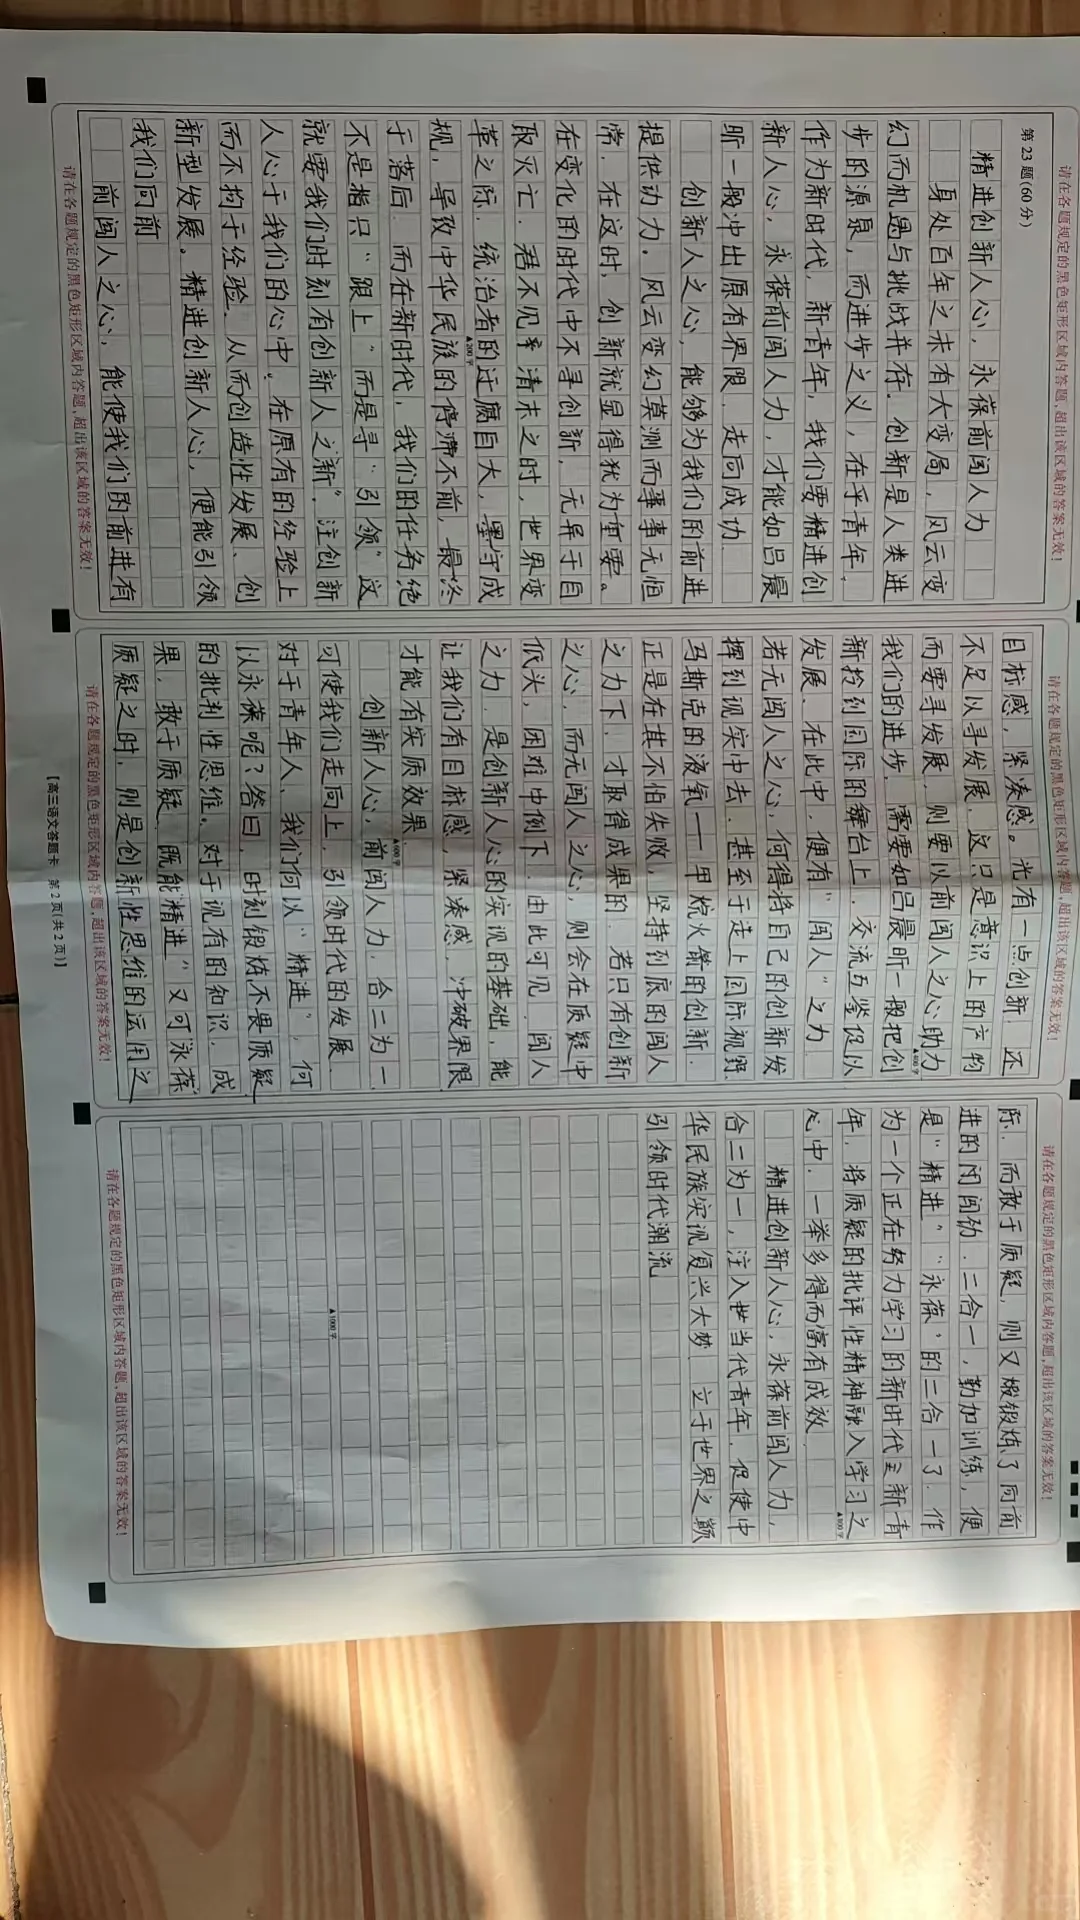 请在各题规定的黑色矩形区域内答题,超出该区域的答案无效!
第 23 题(60 分)
精进创新人心,永葆前闯人力
身处百年之未有大变局,风云变
幻而机遇与挑战并存。创新是人类进
步的源泉,而进步之义,在乎青年。
作为新时代、新青年,我们要精进创
新人心,永葆前闯人力,才能如吕晨
昕一般冲出原有界限,走向成功。
创新人之心,能够为我们的前进
提供动力。风云变幻莫测而事事无恒
常,在这时,创新就显得犹为重要。
在变化的时代中不寻创新,无异于自
取灭亡。君不见季清末之时,世界变
革之际,统治者的迂腐自大,墨守成
▲200字
规,导致中华民族的停滞不前,最终
于落后。而在新时代,我们的任务绝
不是指只“跟上”,而是寻“引领”这
就要我们时刻有创新人之“新”,注创新
人心于我们的心中。在原有的经验上
而不拘于经验,从而创造性发展、创
新型发展。精进创新人心,便能引领
我们向前
前闯人之心,能使我们的前进有
请在各题规定的黑色矩形区域内答题,超出该区域的答案无效!
请在各题规定的黑色矩形区域内答题,超出该区域的答案无效!
目标感,紧凑感。光有一点创新,还
不足以寻发展,这只是意识上的产物
而要寻发展,则要以前闯人之心助力
▲400字
我们的进步,需要如吕晨昕一般把创
新拎到国际的舞台上,交流互鉴促以
发展、在此中,便有“闯人”之力
若无闯人之心,何得将自己的创新发
挥到现实中去,甚至于走上国际视野。
马斯克的液氧——甲烷火箭的创新,
正是在其不怕失败,坚持到底的闯人
之力下,才取得成果的,若只有创新
之心,而无闯人之心,则会在质疑中
低头,困难中倒下。由此可见,闯人
之力,是创新人心的实现的基础,能
让我们有目标感,紧凑感,冲破界限
才能有实质效果
▲600字
创新人人心,前闯人力,合二为一
可使我们走向上,引领时代的发展。
对于青年人、我们何以“精进”,何
以永葆呢?答曰,时刻锻炼不畏质疑
的批判性思维。对于现有的知识、成
果,敢于质疑,既能“精进”又可“永葆
质疑之时,则是创新性思维的运用之
请在各题规定的黑色矩形区域内答题,超出该区域的答案无效!
请在各题规定的黑色矩形区域内答题,超出该区域的答案无效!
际,而敢于质疑,则又煅锻炼了向前
进的闯闯劲,二合一,勤加训练,便
是“精进”“永葆”的二合一了。作
为一个正在努力学习的新时代主新青
年,将质疑的批评性精神融入学习之
▲800字
心中,一举多得而常有成效
精进创新人人心,永葆前闯人力,
合二为一,注入世当代青年,促使中
华民族实现复兴大梦,立于世界之巅
引领时代潮流
▲1000字
请在各题规定的黑色矩形区域内答题,超出该区域的答案无效!
【高三语文答题卡 第 2 页(共 2 页)】